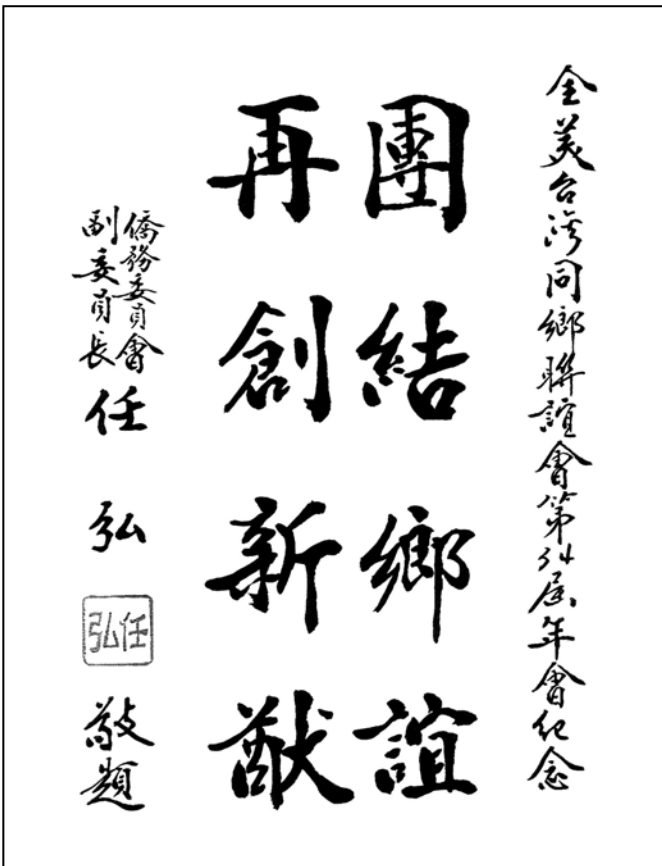 全美台灣同鄉聯誼會第34屆年會紀念
團結鄉誼
再創新猷
僑務委員會
副委員長
任弘
任弘
敬題